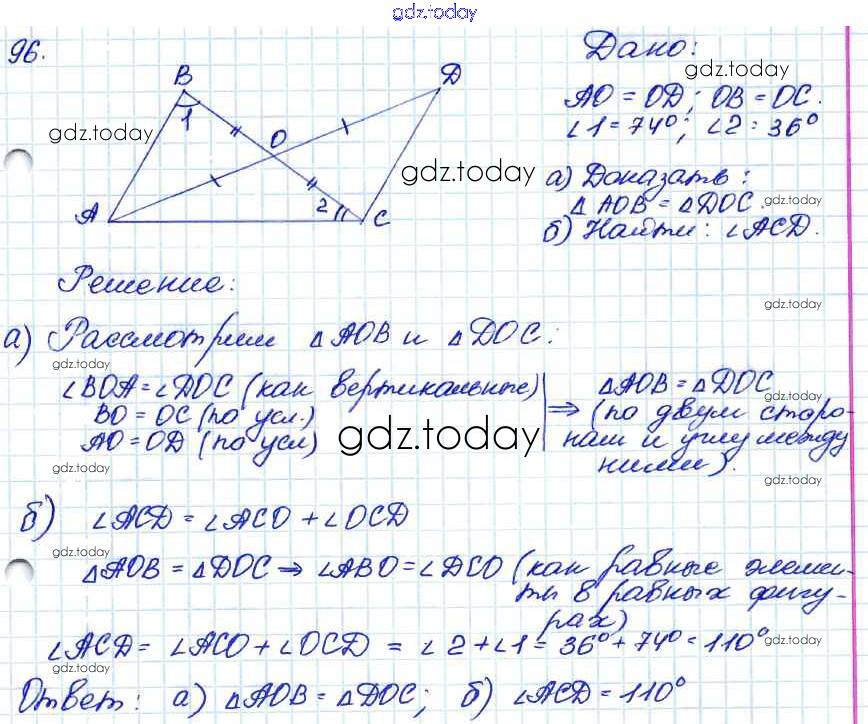 gdz.today
96.
Дано:
gdz.today
B
D
1
O
gdz.today
AO = OD; OB = OC.
∠1 = 74°; ∠2 = 36°
gdz.today
а) Доказать:
△AOB = △DOC
gdz.today
A
2
C
б) Найти: ∠ACD.
Решение:
gdz.today
а) Рассмотрим △AOB и △DOC:
gdz.today
∠BOA = ∠DOC (как вертикальные)
BO = OC (по усл.)
AO = OD (по усл)
⇒
△AOB = △DOC
(по двум сторо-
нам и углу между
ними).
gdz.today
gdz.today
gdz.today
б) ∠ACD = ∠ACO + ∠OCD
gdz.today
gdz.today
△AOB = △DOC ⇒ ∠ABO = ∠DCO (как равные элемен-
ты в равных фигу-
рах)
∠ACD = ∠ACO + ∠OCD = ∠2 + ∠1 = 36° + 74° = 110°
gdz.today
gdz.today
Ответ: а) △AOB = △DOC; б) ∠ACD = 110°